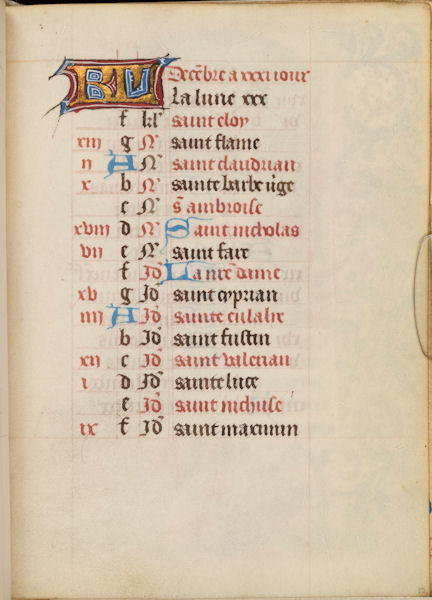 KL Decēbre a xxxi iour
La lune xxx
f kl saint eloy
xiii g N saint flame
ii A N saint claudrian
x b N sainte barbe v̄ge
c N s̄ ambroise
xviii d N Saint nicholas
vii e N saint fare
f Id La nr̄e dame
xv g Id saint cyprian
iiii A Id sainte eulalie
b Id saint fustin
xii c Id saint valerian
i d Id sainte luce
e Id saint nichaise
ix f Id saint maximin